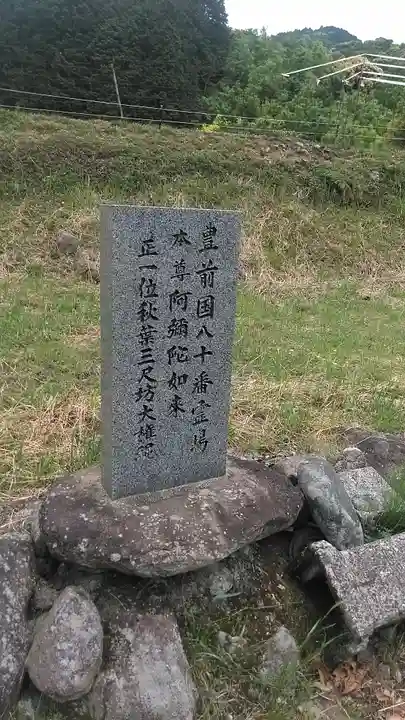 豊前国八十番霊場
本尊阿彌陀如来
正一位秋葉三尺坊大雄